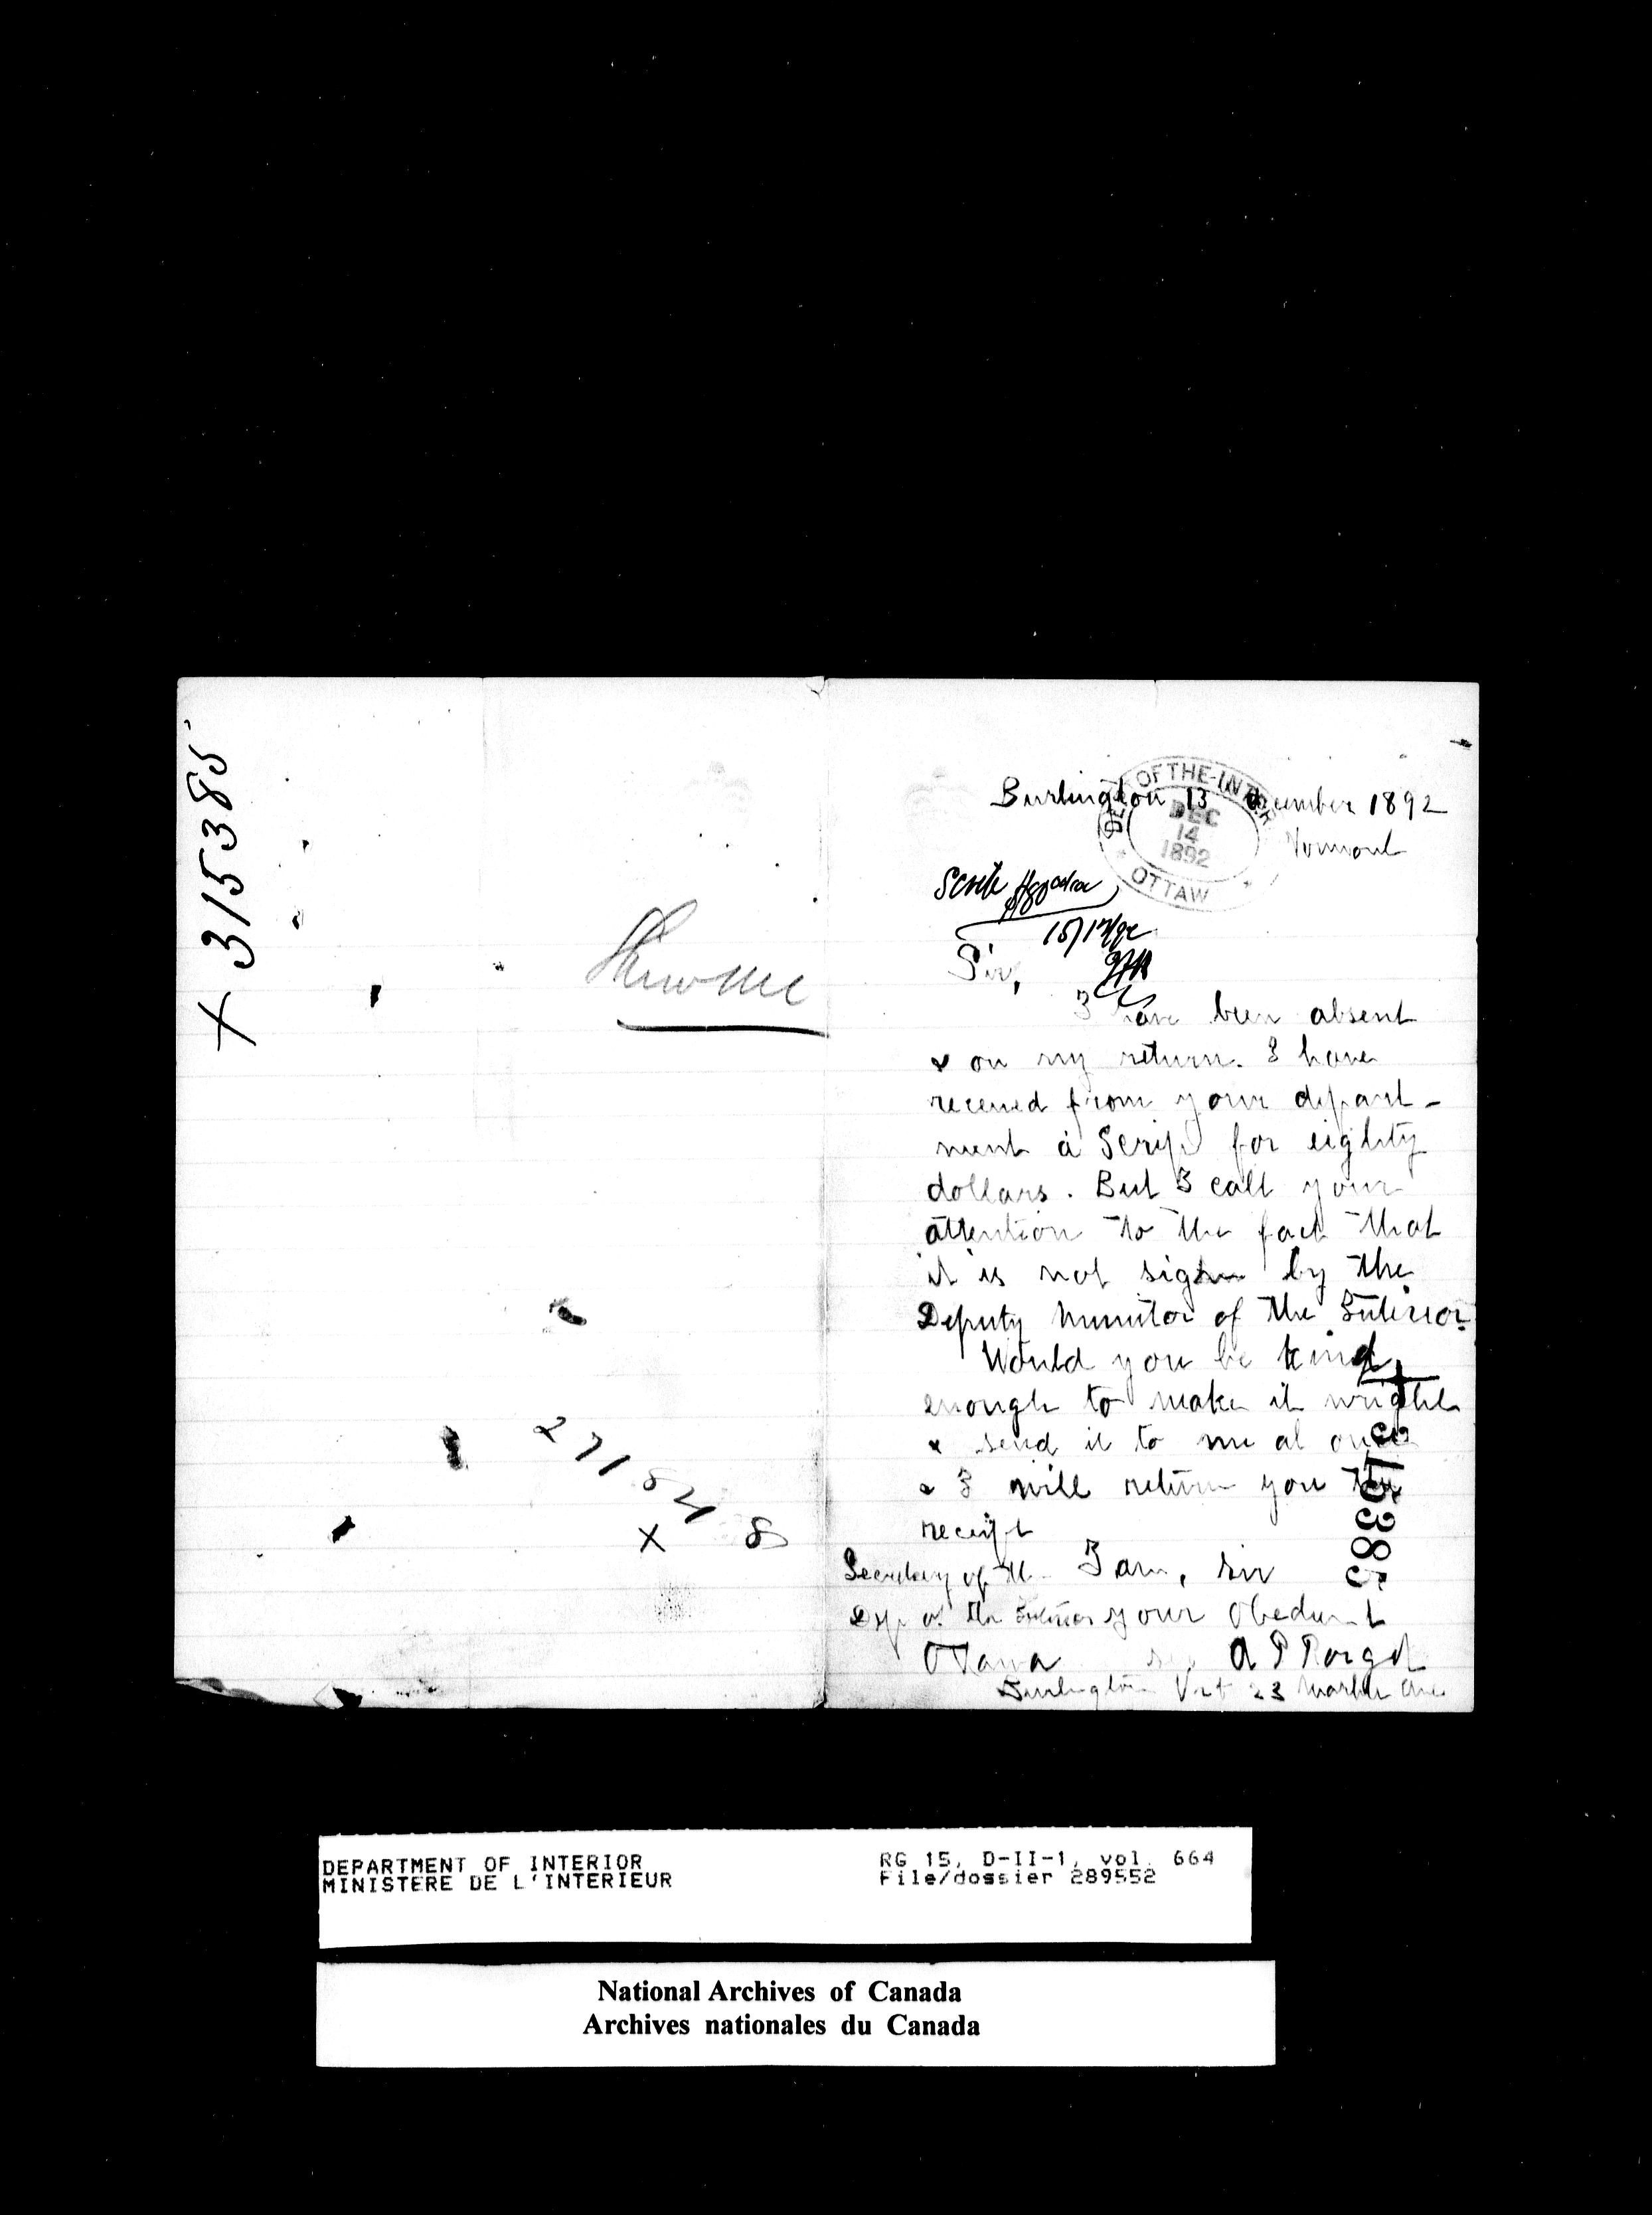 + 315385
Show me
271848
X
Burlington 13 December 1892
Vermont
DEPT OF THE INTER
DEC
14
1892
OTTAW
15/12/92
Sir,
I have been absent
& on my return. I have
received from your depart-
ment a Scrip for eighty
dollars. But I call your
attention to the fact that
it is not sign by the
Deputy Minister of the Interior
Would you be kind
enough to make it wright
& send it to me at once
& I will return you the
receipt
+ 315385
I am, sir
Secretary of the
Dep of the Interior your Obedient
Ottawa A P
Burlington Vet 23 Marble Ave
DEPARTMENT OF INTERIOR
MINISTERE DE L'INTERIEUR
RG 15, D-II-1, vol. 664
File/dossier 289552
National Archives of Canada
Archives nationales du Canada